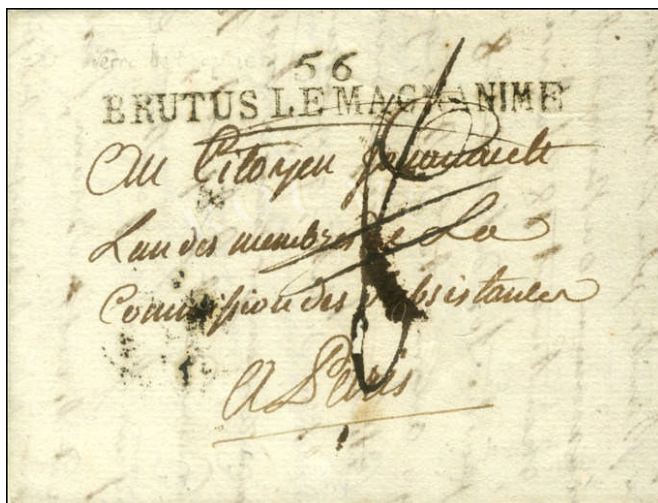 56
BRUTUS LE MAGNANIME
Au Citoyen
L'un des membres de La
Commission des subsistances
A Paris